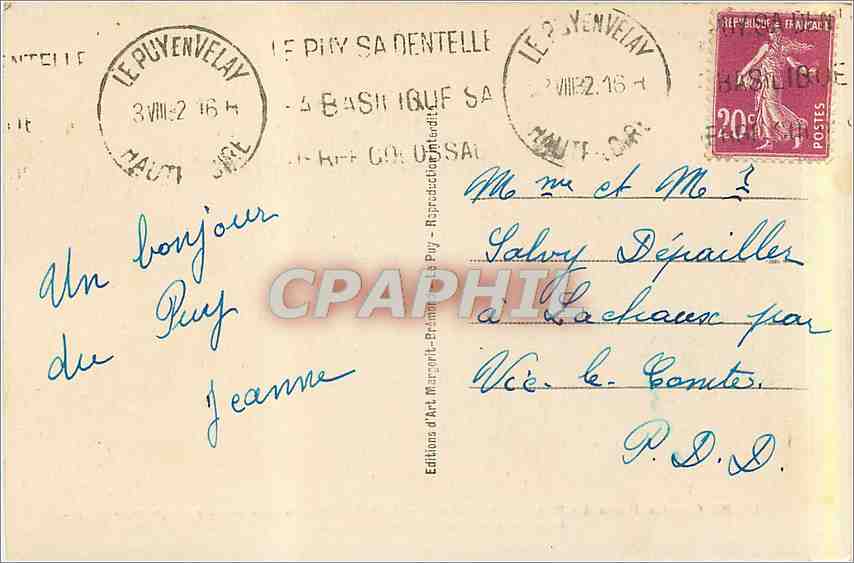 LE PUY EN VELAY
3 VIII 32 16 H
HAUTE LOIRE
DENTELLE
LE PUY SA DENTELLE
SA BASILIQUE SA
LE PUY EN VELAY
VIII 32. 16 H
HAUTE LOIRE
REPUBLIQUE FRANCAISE
20c
POSTES
BASILIQUE
Un bonjour
du Puy
Jeanne
Editions d'Art Margerit-Brémond - Le Puy - Reproduction interdite
Mme et Mr
Salvy Dépailler
à Lachaux par
Vic-le-Comte.
P.D.D.
CPAPHIL